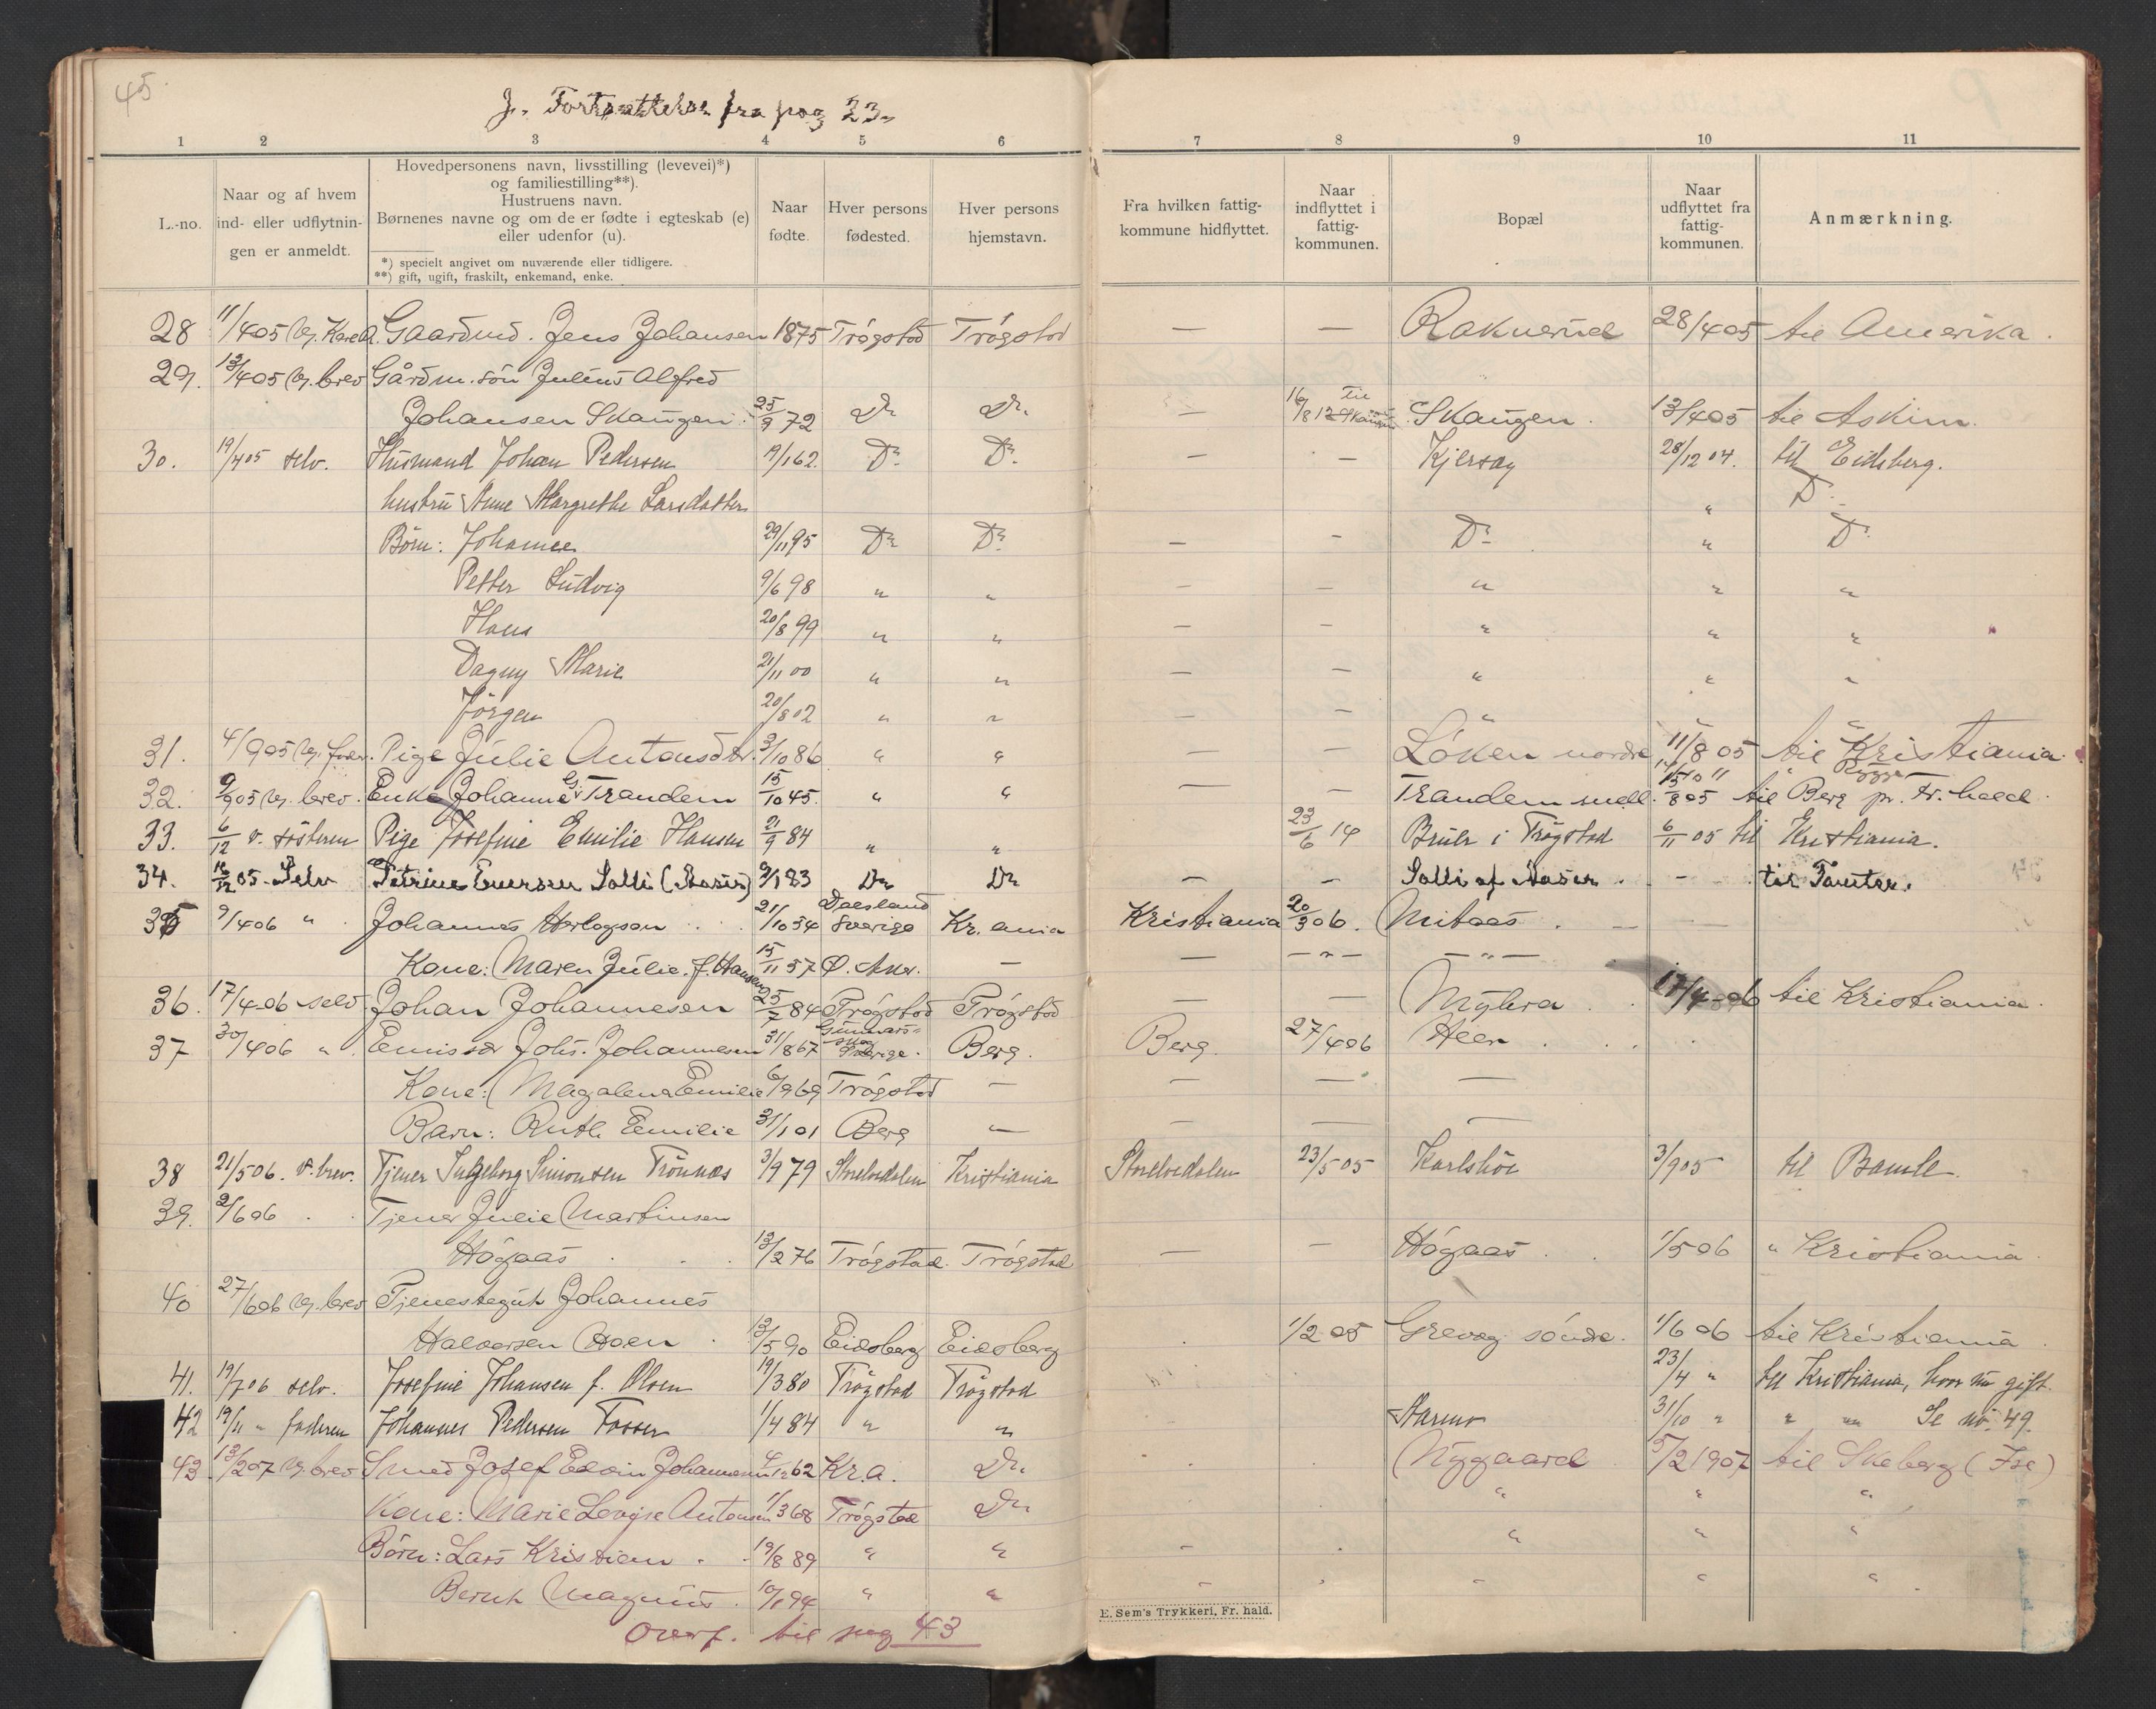 45
J. Fortsættelse fra pag 23.
1 2 3 4 5 6 7 8 9 10 11
L.-no.
Naar og af hvem
ind- eller udflytnin-
gen er anmeldt.
Hovedpersonens navn, livsstilling (levevei)*)
og familiestilling**).
Hustruens navn.
Børnenes navne og om de er fødte i egteskab (e)
eller udenfor (u).
*) specielt angivet om nuværende eller tidligere.
**) gift, ugift, fraskilt, enkemand, enke.
Naar
fødte.
Hver persons
fødested.
Hver persons
hjemstavn.
Fra hvilken fattig-
kommune hidflyttet.
Naar
indflyttet i
fattig-
kommunen.
Bopæl
Naar
udflyttet fra
fattig-
kommunen.
Anmærkning.
28 11/4 05 Gaardmd. Jens Johansen 1875 Trögstad Trögstad — — Rakuerud 28/4 05 til Amerika.
29. 13/4 05 Vg. brev Gårdm. sön Julius Alfred
Johansen Skaugen 25/9 72 Do Do — 16/8 12 til Skaugen 13/4 05 til Askim.
30. 19/4 05 selv. Husmand Johan Pedersen 19/1 62 Do Do — — Kjersøg 28/12 04. til Eidsberg.
hustru Anne Margrethe Larsdatter " Do
Börn: Johannes 29/11 95 Do Do — — Do " Do
Petter Ludvig 9/6 98 " " — — " " "
Hans 20/8 99 " " — — " " "
Dagny Marie 21/11 00 " " — — " " "
Jörgen 20/8 02 " " — — " " "
31. 4/9 05 Vg. fader. Pige Julie Antonsdtr. 3/10 86 " " — — Löken nordre 11/8 05 til Kristiania.
32. 9/9 05 Vg. brev. Enke Johanne G. Trandem 15/10 45. " " — — Trandem medl. 15/8 05 til Berg pr. Fr.hald.
33. 6/12 v. søsteren Pige Josefine Emilie Hansen 21/9 84 " " 23/6 14 i Trögstad 6/11 05 til Kristiania.
34. 16/12 05 Selv Petrine Enersen Solli (Aaser) 9/1 83 Do Do — — Solli af Aaser. — til Tomter.
35 9/4 06 " Johannes Herlogson 21/10 54 Dalsland Sverige Kr.ania Kristiania 20/3 06. Mitaas. —
Kone: Maren Julie f. Hansen 15/11 57 Ø. Aker. — — — " — — " —
36. 17/4 06 selv Johan Johannesen 25/7 84 Trögstad Trögstad — — Myhra 17/4 06 til Kristiania.
37 30/4 06 " Emissær Johs. Johannesen 31/8 67 Sverige. Berg. Berg. 27/4 06 Heen
Kone: Magdalena Emilie 6/9 69 Trögstad — — — —
Barn: Ruth Emilie 31/1 01 Berg — — — —
38 21/5 06. v. brev. Tjener Ingeborg Simonsen Trönnæs 3/9 79 Storelvedalen Kristiania Storelvedalen 23/5 05 Karlshöi 3/9 05 til Bamle
39. 2/6 06 Tjener Julie Martinsen
Högaas 13/2 76 Trögstad. Trögstad — — Högaas 1/5 06 " Kristiania
40 27/6 06 Vg. brev Tjenestegut Johannes
Halvorsen Moen 13/5 90 Eidsberg Eidsberg 1/2 05 Grevøg söndre. 1/6 06 til Kristiania
41. 19/7 06 selv. Josefine Johansen f. Olsen 19/3 80 Trögstad Trögstad 23/4 " til Kristiania, hvor nu gift.
42 19/11 " faderen Johannes Pedersen Fosser 1/4 84 " " 31/10 " " " Se nr. 49.
43 13/2 07 Vg. brev Smed Josef Edvin Johannesen 4/12 62 Kr.a. Do Nygaard 5/2 1907 til Skeberg
Kone: Marie Lovise Antonsen 1/3 68 Trögstad Do " " "
Börn: Lars Kristian 19/8 89 " " " " "
Bernt Magnus 10/1 94 " " " " "
overf. til pag 43
E. Sem's Trykkeri, Fr. hald.